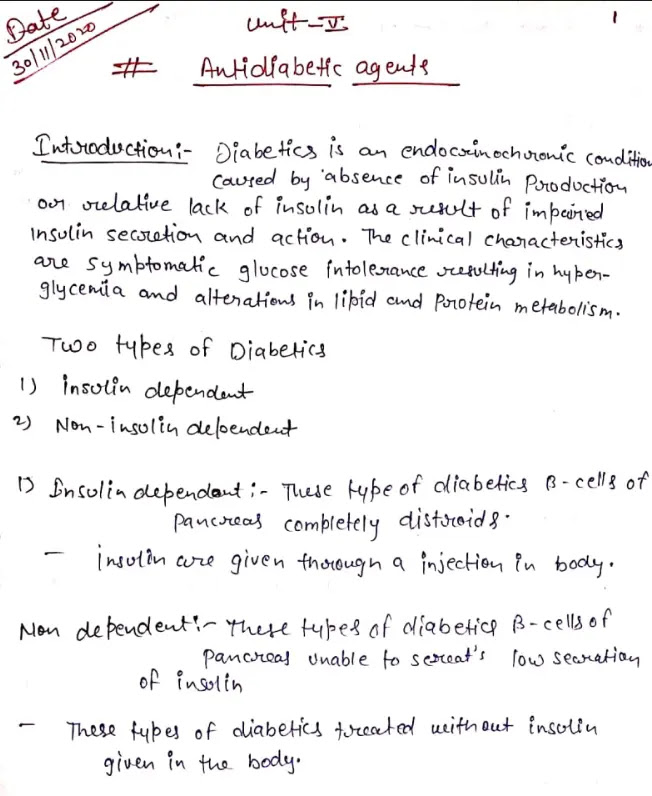 Date
30/11/2020
Unit-V
1
# Antidiabetic agents
Introduction:- Diabetics is an endocrinochronic condition
caused by absence of insulin Production
or relative lack of insulin as a result of impaired
insulin secretion and action. The clinical characteristics
are symptomatic glucose intolerance resulting in hyper-
glycemia and alterations in lipid and Protein metabolism.
Two types of Diabetics
1) insulin dependent
2) Non-insulin dependent
1) Insulin dependent :- These type of diabetics β-cells of
Pancreas completely distroids.
- insulin are given thorough a injection in body.
Non dependent:- These types of diabetics β-cells of
Pancreas unable to screat's low secration
of insulin
- These types of diabetics treated without insulin
given in the body.